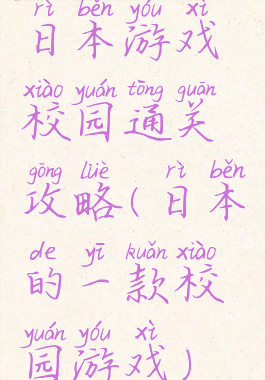 rì běn yóu xì
日本游戏
xiào yuán tōng guān
校园通关
gōng lüè rì běn
攻略(日本
de yī kuǎn xiào
的一款校
yuán yóu xì
园游戏)